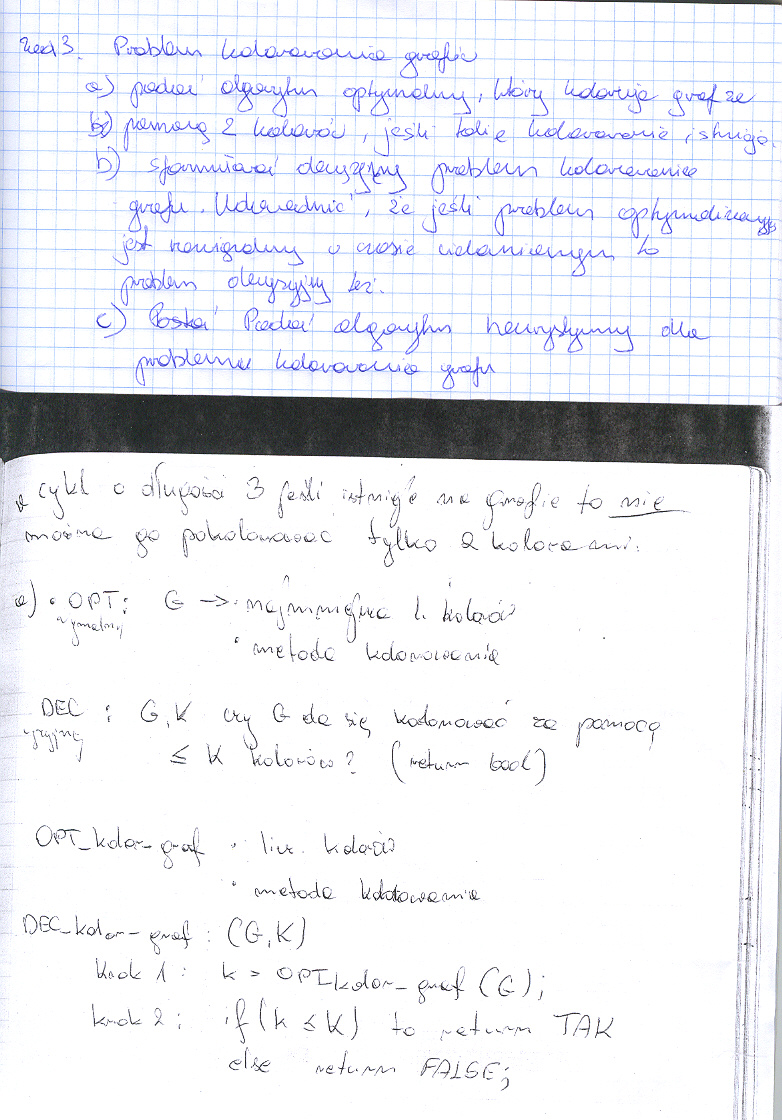 zad 3. Problem kolorowania grafu
a) podać algorytm optymalny, który koloruje graf ze
pomocą 2 kolorów, jeśli takie kolorowanie istnieje.
b) sformułować decyzyjny problem kolorowania
grafu. Udowodnić, że jeśli problem optymalizacyjny
jest rozwiązalny w czasie wielomianowym to
problem decyzyjny też.
c) Podać algorytm heurystyczny dla
problemu kolorowania grafu
cykl o długości 3 jeśli istnieje na grafie to nie
można go pokolorować tylko 2 kolorami.
a) • OPT: G → • najmniejsza l. kolorów
• metoda kolorowania
DEC : G, K czy G da się kolorować za pomocą
yzyjny
≤ K kolorów? (return bool)
OPT_kolor_graf • licz. kolorów
• metoda kolorowania
DEC_kolor_graf : (G,K)
krok 1 : k = OPT_kolor_graf (G);
krok 2 : if (k ≤ K) to return TAK
else return FALSE;